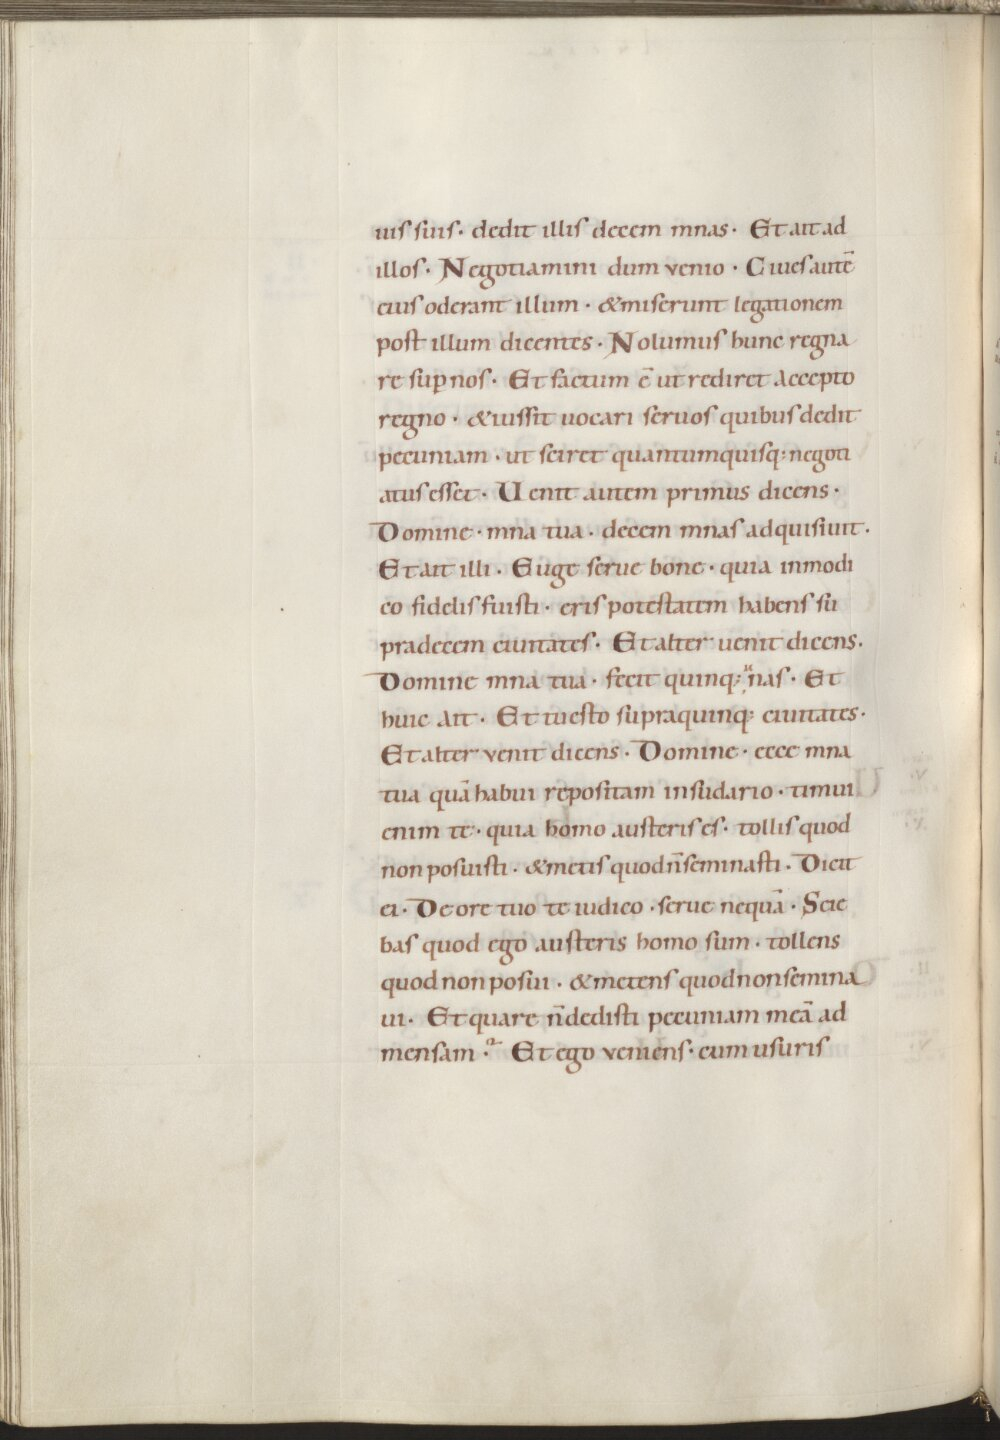 uis suis· dedit illis decem mnas· Et ait ad
illos· Negotiamini dum venio· Ciues autē
eius oderant illum· &miserunt legationem
post illum dicentes· Nolumus hunc regna
re suꝑ nos· Et factum ē ut rediret accepto
regno· &iussit uocari seruos quibus dedit
pecuniam· ut sciret quantum quisq; negoti
atus esset· Uenit autem primus dicens·
Domine· mna tua· decem mnas adquisiuit·
Et ait illi· Euge serue bone· quia in modi
co fidelis fuisti· eris potestatem habens su
pra decem ciuitates· Et alter uenit dicens·
Domine mna tua· fecit quinq; mnas· Et
huic ait· Et tu esto supra quinq; ciuitates·
Et alter venit dicens· Domine· ecce mna
tua quā habui repositam in sudario· timui
enim te· quia homo austeris es· tollis quod
non posuisti· &metis quod n̄ seminasti· Dicit
ei· De ore tuo te iudico· serue nequā· Scie
bas quod ego austeris homo sum· tollens
quod non posui· &metens quod non semina
ui· Et quare n̄ dedisti pecuniam meā ad
mensam? Et ego veniens· cum usuris